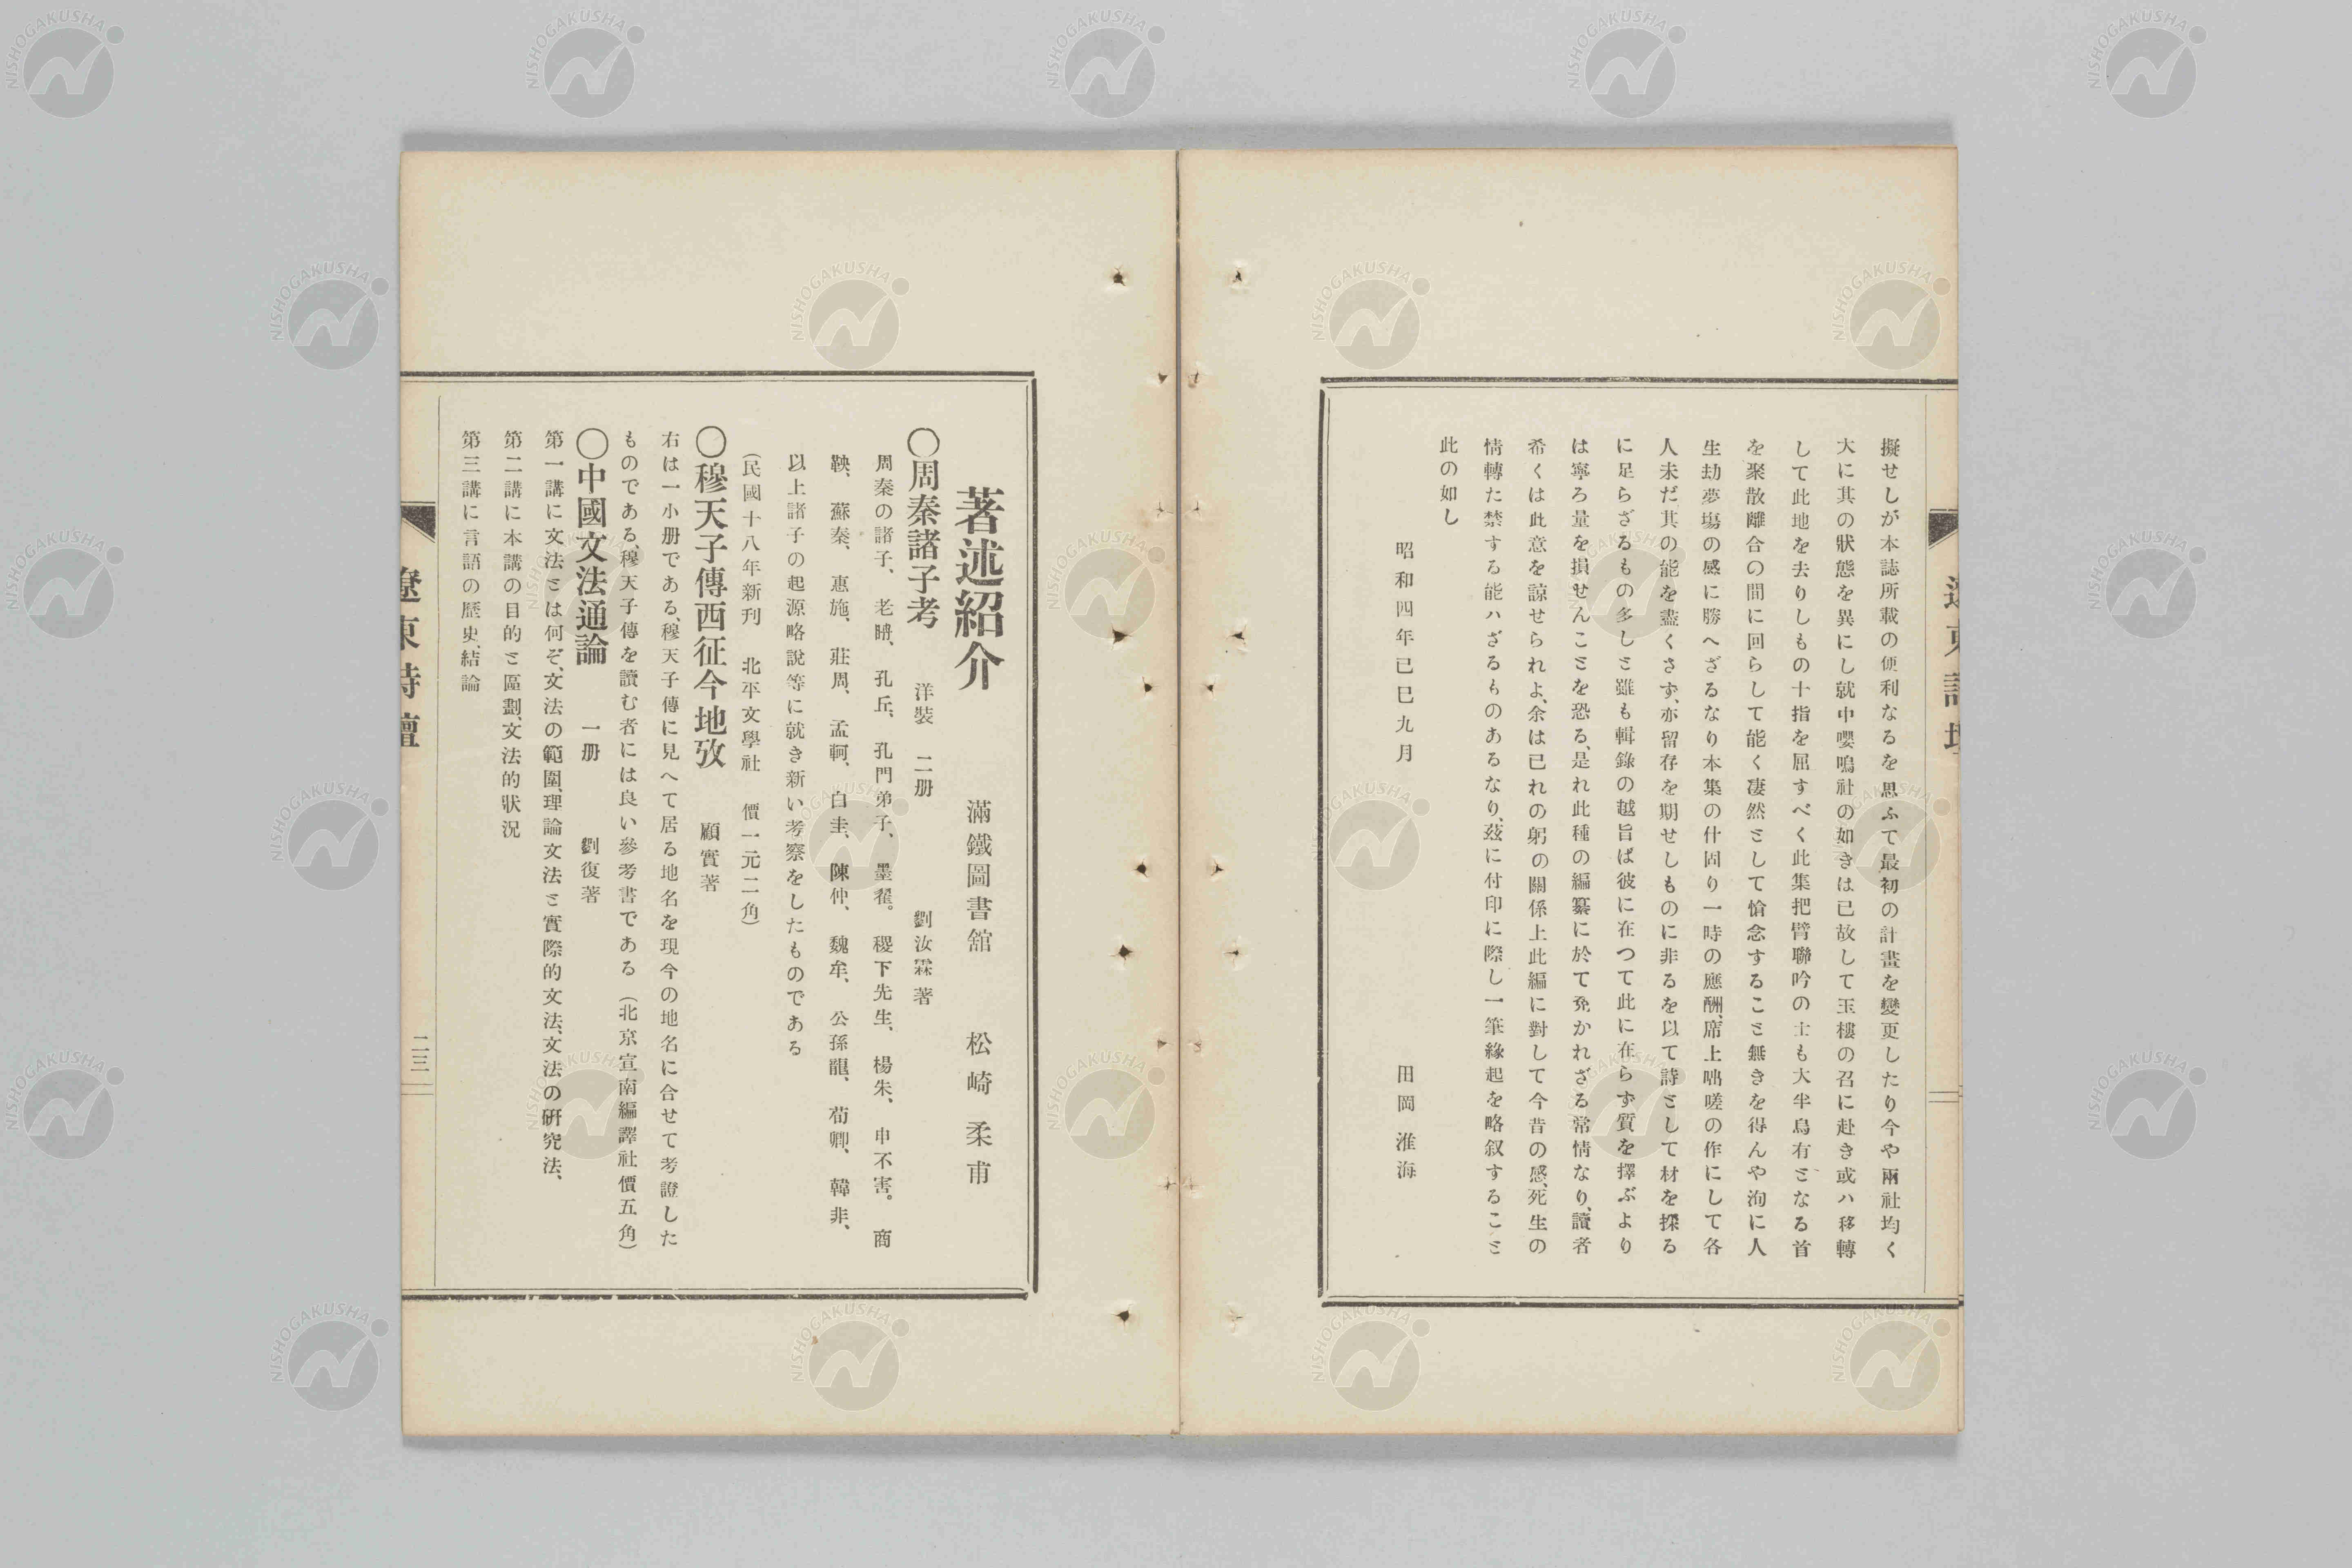 擬せしが本誌所載の便利なるを思ふて最初の計畫を變更したり今や兩社均く
大に其の狀態を異にし就中嚶鳴社の如きは已故して玉樓の召に赴き或ハ移轉
して此地を去りしもの十指を屈すべく此集把臂聯吟の士も大半烏有となる首
を聚散離合の間に回らして能く凄然として愴念すること無きを得んや洵に人
生劫夢塲の感に勝へざるなり本集の什固り一時の應酬、席上咄嗟の作にして各
人未だ其の能を盡くさず、亦留存を期せしものに非るを以て詩として材を探る
に足らざるもの多しと雖も輯錄の越旨ば彼に在つて此に在らず質を擇ぶより
は寧ろ量を損せんことを恐る、是れ此種の編纂に於て免かれざる常情なり、讀者
希くは此意を諒せられよ、余は已れの躬の關係上此編に對して今昔の感、死生の
情轉た禁する能ハざるものあるなり、玆に付印に際し一筆緣起を略叙すること
此の如し
昭和四年己巳九月 田岡淮海
著述紹介 滿鐵圖書舘 松崎柔甫
〇周秦諸子考 洋裝 二册 劉汝霖著
周秦の諸子、老聃、孔丘、孔門弟子、墨翟。稷下先生、楊朱、申不害。商
鞅、蘇秦、惠施、莊周、孟軻、白圭、陳仲、魏牟、公孫龍、荀卿、韓非、
以上諸子の起源略說等に就き新い考察をしたものである
(民國十八年新刊 北平文學社 價一元二角)
〇穆天子傳西征今地攷 顧實著
右は一小册である、穆天子傳に見へて居る地名を現今の地名に合せて考證した
ものである、穆天子傳を讀む者には良い參考書である(北京宣南編譯社價五角)
〇中國文法通論 一册 劉復著
第一講に文法とは何ぞ、文法の範圍、理論文法と實際的文法、文法の硏究法、
第二講に本講の目的と區劃、文法的狀況
第三講に言語の歷史、結論
遼東詩壇 二三
NISHOGAKUSHA